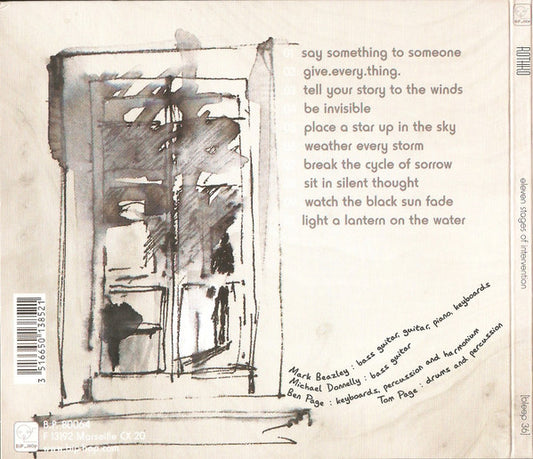 01 say something to someone
02 give.every.thing.
03 tell your story to the winds
04 be invisible
05 place a star up in the sky
weather every storm
break the cycle of sorrow
sit in silent thought
watch the black sun fade
light a lantern on the water
Mark Beazley : bass guitar, guitar, piano, keyboards
Michael Donnelly : bass guitar
Ben Page : keyboards, percussion and harmonium
Tom Page : drums and percussion
3 516650 138521
B.P. 80064
F 13192 Marseille CX 20
www.bip-hop.com
BiP_HOp
ROTHKO
eleven stages of intervention
[bleep 36]